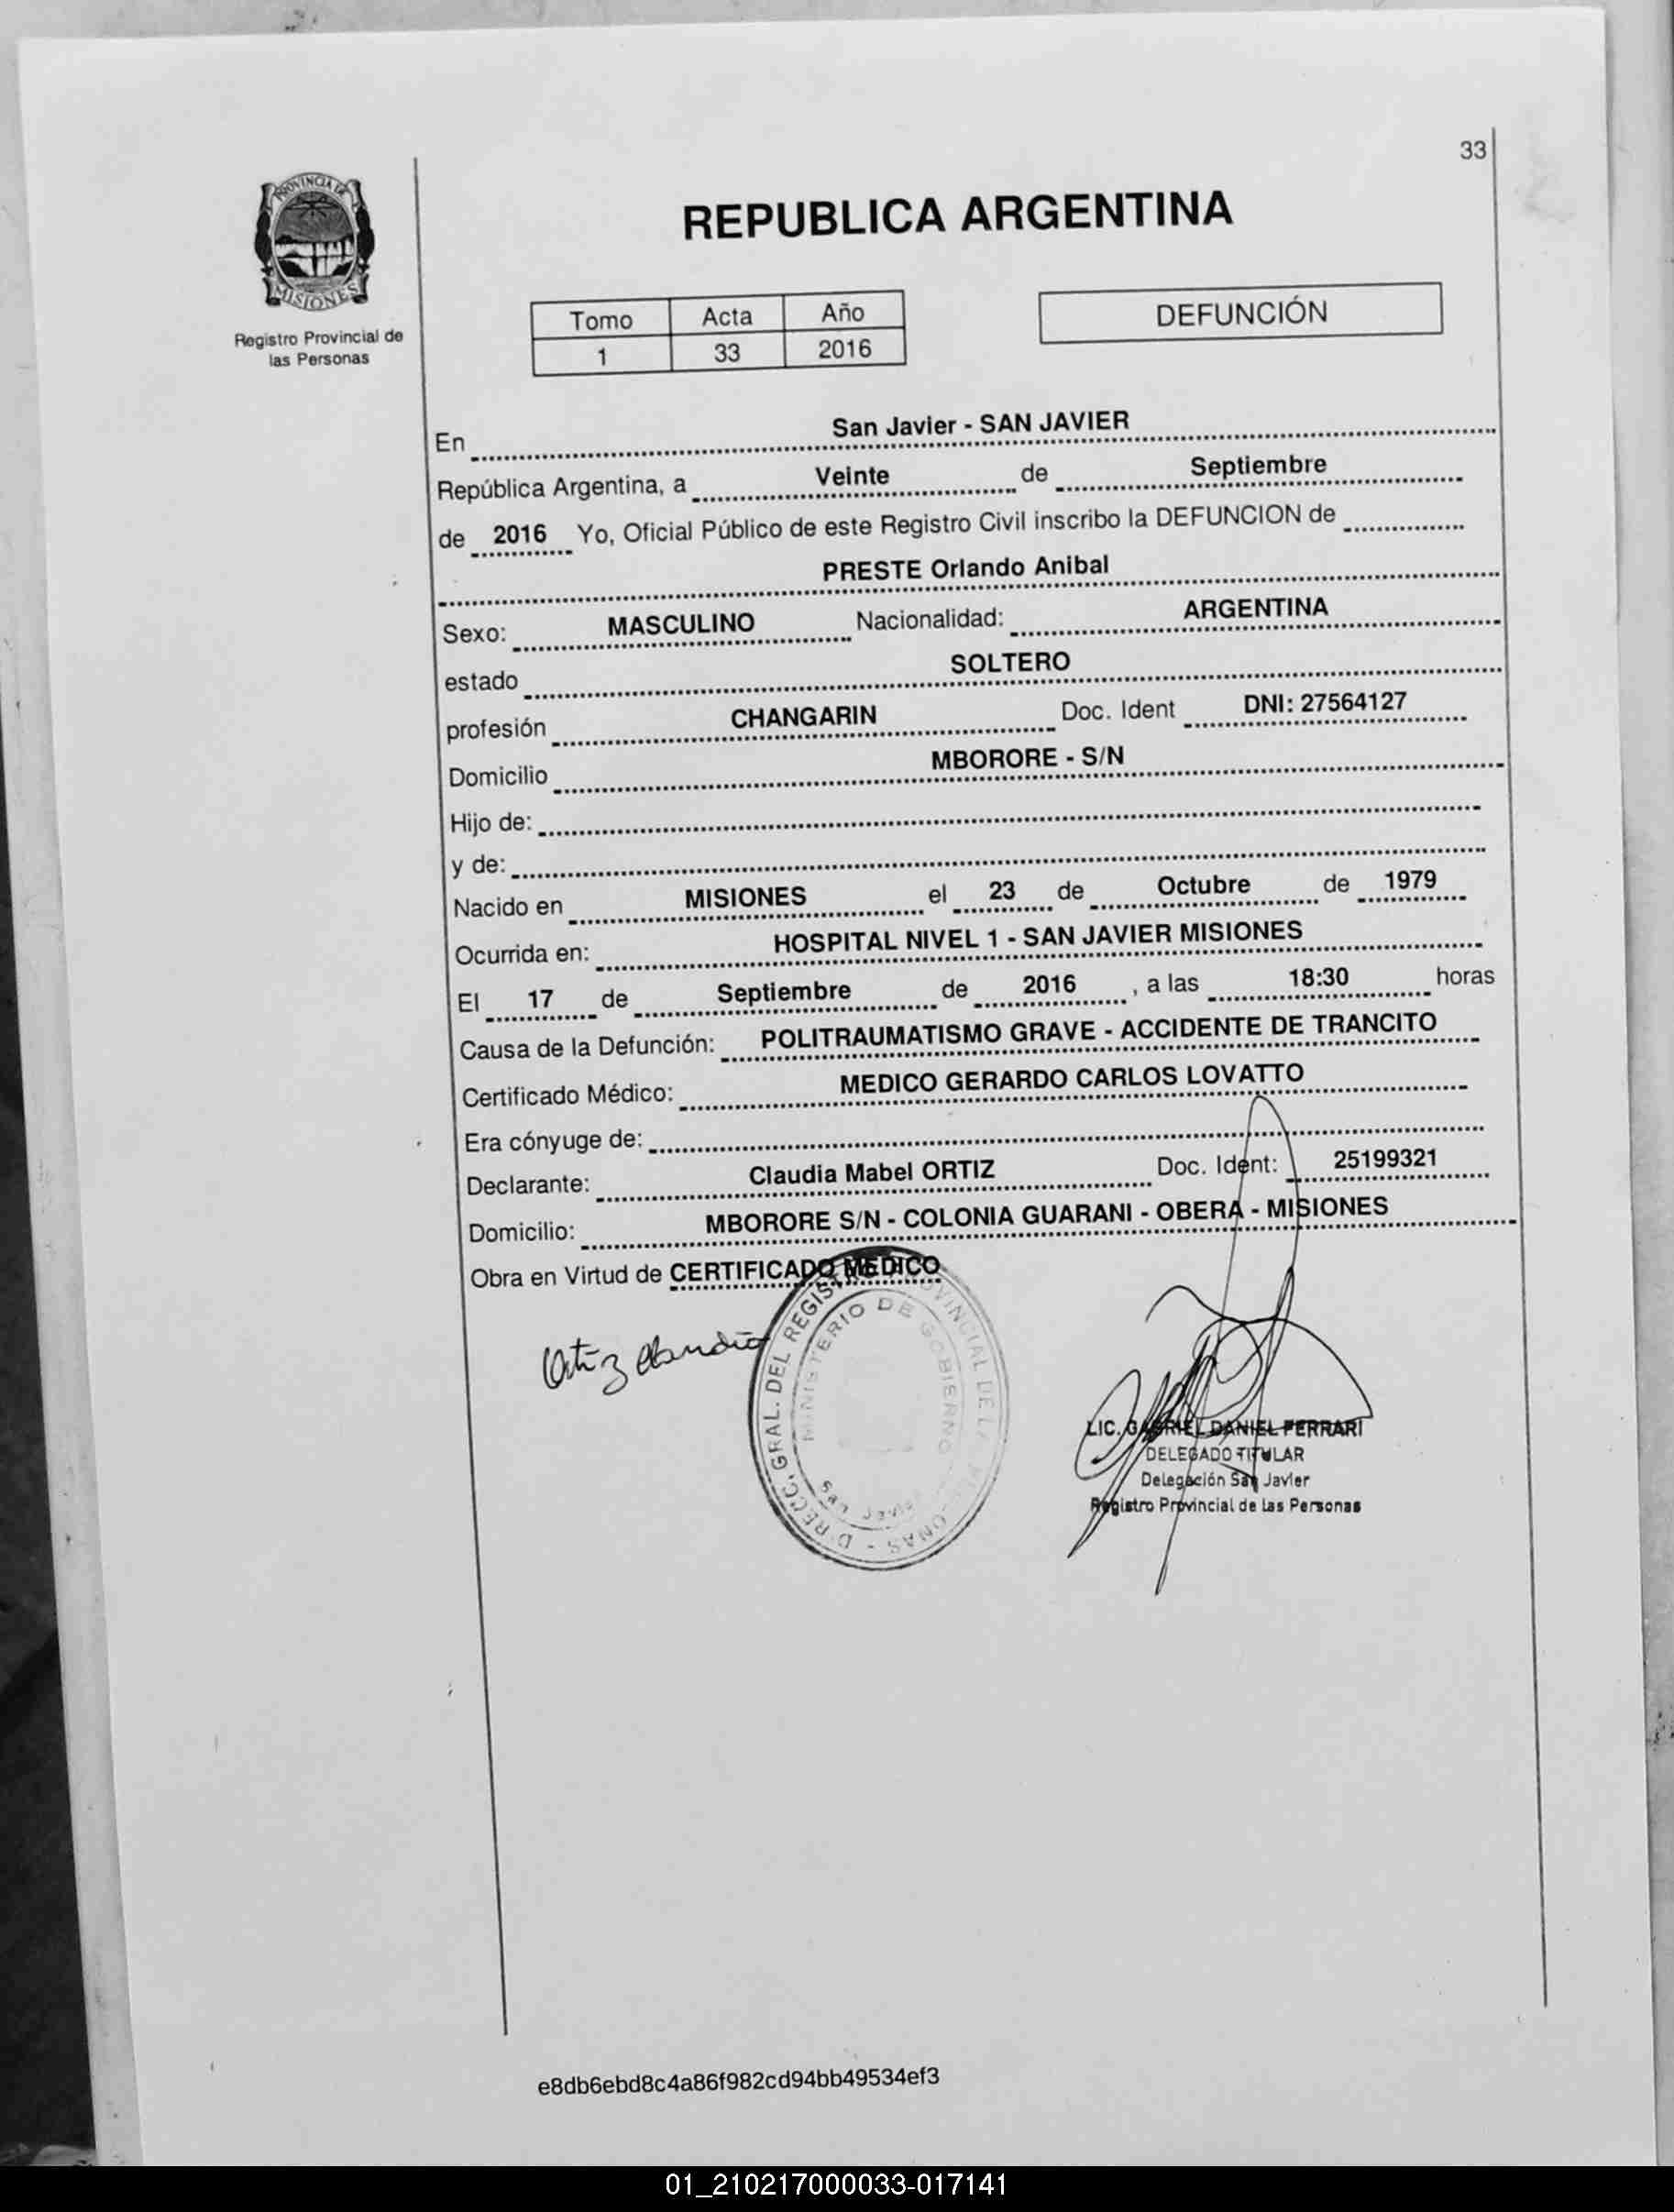 33
PROVINCIA DE
MISIONES
Registro Provincial de
las Personas
REPUBLICA ARGENTINA
Tomo Acta Año
1 33 2016
DEFUNCIÓN
En San Javier - SAN JAVIER
República Argentina, a Veinte de Septiembre
de 2016 Yo, Oficial Público de este Registro Civil inscribo la DEFUNCION de
PRESTE Orlando Anibal
Sexo: MASCULINO Nacionalidad: ARGENTINA
estado SOLTERO
profesión CHANGARIN Doc. Ident DNI: 27564127
Domicilio MBORORE - S/N
Hijo de:
y de:
Nacido en MISIONES el 23 de Octubre de 1979
Ocurrida en: HOSPITAL NIVEL 1 - SAN JAVIER MISIONES
El 17 de Septiembre de 2016 , a las 18:30 horas
Causa de la Defunción: POLITRAUMATISMO GRAVE - ACCIDENTE DE TRANCITO
Certificado Médico: MEDICO GERARDO CARLOS LOVATTO
Era cónyuge de:
Declarante: Claudia Mabel ORTIZ Doc. Ident: 25199321
Domicilio: MBORORE S/N - COLONIA GUARANI - OBERA - MISIONES
Obra en Virtud de CERTIFICADO MEDICO
Ortiz Claudia
DIRECC. GRAL. DEL REGISTRO PROVINCIAL DE
MINISTERIO DE GOBIERNO
San Javier
LIC. GABRIEL DANIEL FERRARI
DELEGADO TITULAR
Delegación San Javier
Registro Provincial de Las Personas
e8db6ebd8c4a86f982cd94bb49534ef3
01_210217000033-017141